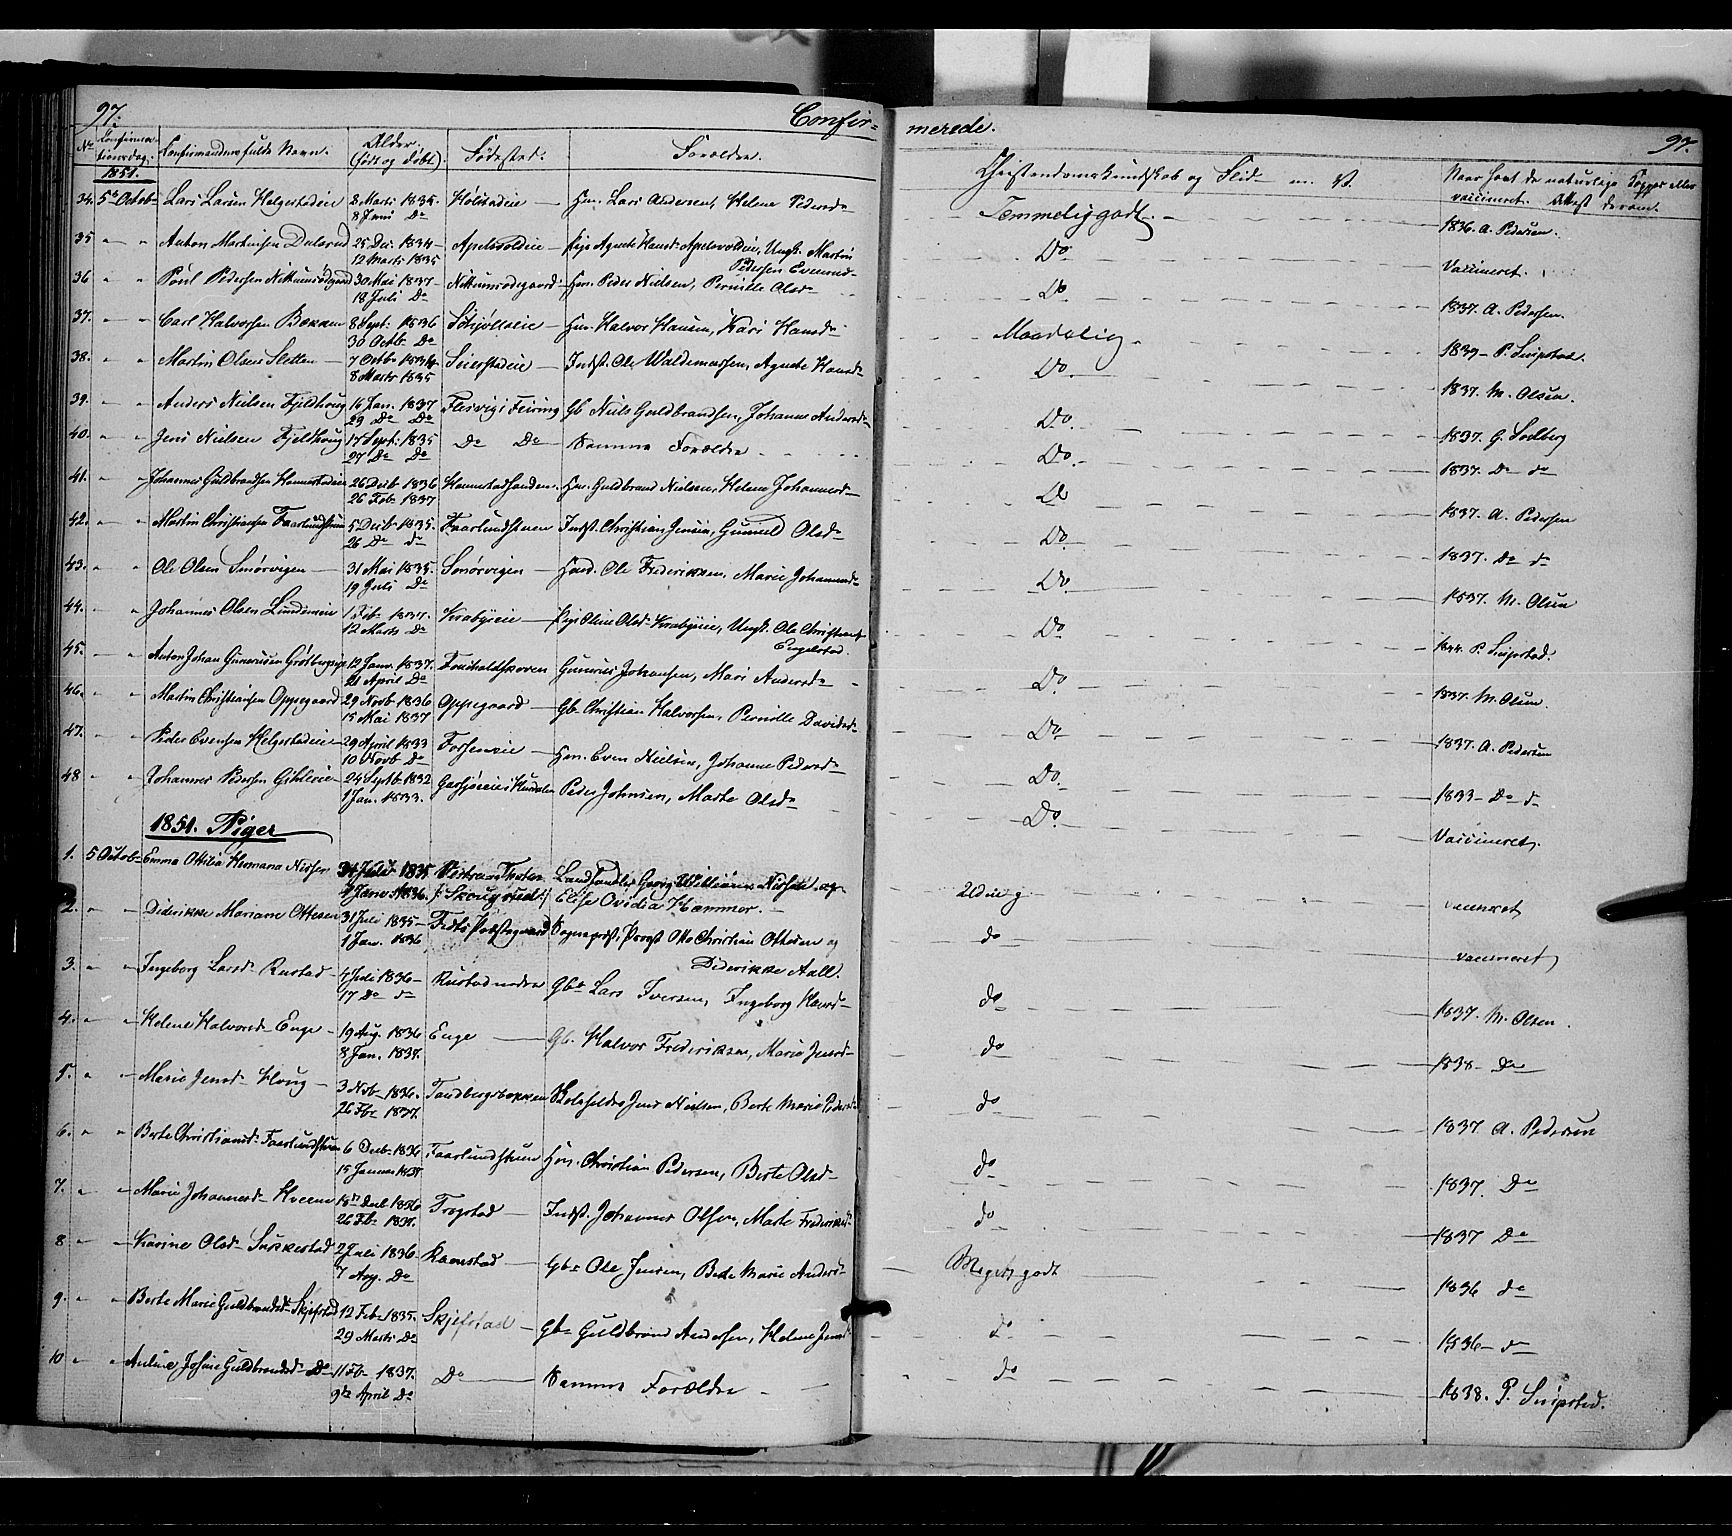 97.
Confir-
merede.
97.
No
Confirmationsdag.
Konfirmandens fulde Navn.
Alder. (født og døbt)
Fødested.
Forældre.
Christendomskundskab og Flid
Naar havt de naturlige Kopper eller vaccineret. Attest derom.
1851.
34. 5te Octob- Lars Larsen Helgestadeie 8 Juni Do Hølstadeie Hm. Lars Andersen, Helene Pedersd- Temmelig godt. 1836. A. Pedersen.
35 " " Anton Martinsen Dalerud 25 Dec. 1834 12 Marts 1835 Apelsvoldeie Pige Agnete Hansd- Apelsvoldeie, Ungk. Martin Pedersen Do Vaccineret.
36 " " Poul Pedersen 30 Mai 1837 18 Juli Do Hm. Peder Nielsen, Pernille Olsd- Do 1837. A. Pedersen.
37. " " Carl Halvorsen Bakken 8 Sept. 1836 30 Octb. Do Hm. Halvor Hansen, Kari Hansd- Maadelig. 1839 P. Sivestad.
38. " " Martin Olsen Sletten 7 Octbr 1834 8 Marts 1835 Seierstadeie Indst. Ole Waldemarsen, Agnete Hansd- Do 1837. M. Olsen.
39. " " Anders Nielsen Fjeldhoug 16 Jan. 1837 29 Do Do Feiring Gb. Niels Guldbrandsen, Johanne Andersd- Do 1837. G. Sodberg
40. " " Jens Nielsen Fjeldhoug 17 Sept. 1835 27 Do Do Do Do Samme Forældre Do 1837. Do do
41. " " Johannes Guldbrandsen 26 Decb 1836 26 Feb. 1837 Hm. Guldbrand Nielsen, Helene Johannesd- Do 1837. A. Pedersen
42. " " Martin Christiansen Faarlundstuen 5 Decb 1835. 26 Do do Faarlundstuen Indst. Christian Jensen, Gunild Olsd- Do 1837. Do do
43. " " Ole Olsen Smørvigen 31 Mai 1835. 19 Juli Do Smørvigen Ole Frederiksen, Marie Johannesd- Do 1837. M. Olsen
44. " " Johannes Olsen Lundemeie 1 Feb. 1837. 12 Marts Do Krabyeie Pige Oline Olsd- Krabyeie, Ungk. Ole Christians. Engelstad. Do 1844. P. Sivestad.
45. " " Anton Johan Gunerusen 12 Janr. 1837. 21 April Do Gunerius Johansen, Mari Andersd- Do 1837. M. Olsen
46. " " Martin Christiansen Oppegaard 29 Novb 1836 15 Mai 1837 Oppegaard Gb. Christian Halvorsen, Pernille Davidsd- Do 1837. A. Pedersen
47. " " Peder Evensen Helgestadeie 29 April 1833 10 Novb Do Forseneie Hm. Even Nielsen, Johanne Pedersd- Do 1833 Do do
48 " " Johannes Pedersen 24 Septb 1832 1 Jan. 1833. Peder Johnsen, Marte Olsd- Do. Vaccineret.
1851. Piger
1. 5 Octob- Emma Ottilia Hermana Nissen 1835 Janr. 1836. Vestre Thoten Landhandler Georg Wilhelm Nissen og Elise Ovidia Hammer. Udm. g vaccineret
2. " " Diderikke Mariane Ottesen 31 Juli 1835 1 Jan. 1836 Præstegaard Sognepræst, Provst Otto Christian Ottesen og Diderikke Aall. do vaccineret
3. " " Ingeborg Larsd- Rustad 4 Juli 1836 17 Do do Rustad nedre Gbr Lars Iversen, Ingeborg Hansd- do 1837. M. Olsen.
4. " " Helene Halvorsd- Enge 19 Aug. 1836 8 Jan. 1837. Enge Gb. Halvor Frederiksen, Marie Jensd- do 1838 Do
5. " " Marie Jensd- Houg 3 Novb 1836. 26 Fbr 1837. Tandbergsbakken Jens Nielsen, Berte Marie Pedersd- do 1837. A. Pedersen
6. " " Berte Christiansd- Faarlundstuen 6 Decb 1836 15 Januar 1837. Faarlundstuen Hm. Christian Pedersen, Berte Olsd- do 1837. Do
7. " " Marie Johannesd- Hveem 18de Decb 1836 26 Fb. 1837. Trogstad Indst. Johannes Olsen, Marte Frederiksd- do 1837 Do
8 " " Karine Olsd- Sukkestad 2 Juli 1836 7 Aug. Do Ramstad Gbr Ole Jensen, Berte Marie Andersd- Meget godt 1836 do
9. " " Berte Marie Guldbrandsd- Skjefstad 12 Feb. 1835. 29 Marts Do Skjefstad Gbr Guldbrand Andersen, Helene Jensd- do 1836 do
10 " " Auline Josine Guldbrandsd- Do 11 Fb 1837. 9de April Do Do Samme Forældre do 1838. P. Sivestad.